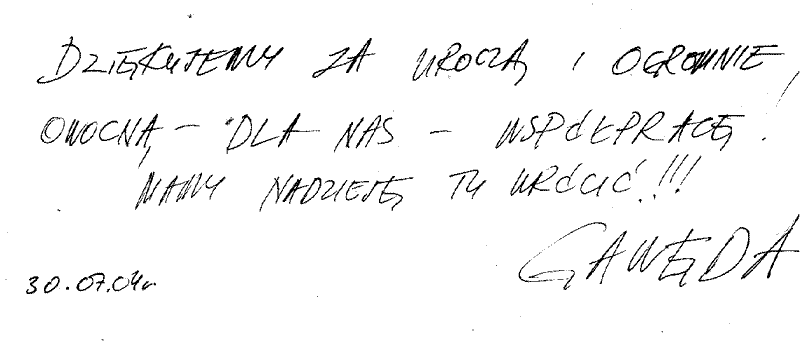 DZIĘKUJEMY ZA UROCZĄ I OGROMNIE,
OWOCNĄ - DLA NAS - WSPÓŁPRACĘ!
MAMY NADZIEJĘ TU WRÓCIĆ!!!
GAWĘDA
30.07.04r